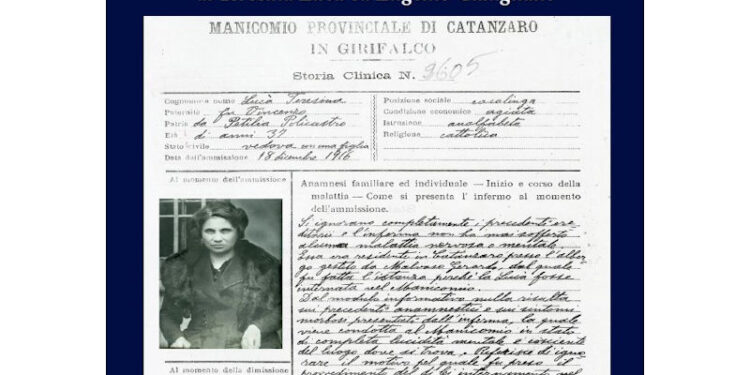 MANICOMIO PROVINCIALE DI CATANZARO
IN GIRIFALCO
Storia Clinica N. 9605
Cognome e nome Lucà Teresina
Paternità fu Vincenzo
Patria da Petilia Policastro
Età di anni 37
Stato civile vedova con una figlia
Data dell'ammissione 18 dicembre 1916
Posizione sociale casalinga
Condizione economica agiata
Istruzione analfabeta
Religione cattolica
Al momento dell'ammissione
Anamnesi familiare ed individuale — Inizio e corso della
malattia — Come si presenta l' infermo al momento
dell'ammissione.
Si ignorano completamente i precedenti ere
ditarii e l'inferma non ha mai sofferto
alcuna malattia nervosa o mentale.
Essa era residente in Catanzaro presso l'alber
go gestito da Malvaso Gerardo, dal quale
fu fatta l'istanza perché la Lucà fosse
internata nel Manicomio.
Dal modulo informativo nulla risulta
sui precedenti anamnestici e sui sintomi
morbosi presentati dall'inferma, la quale
viene condotta al Manicomio in stato
di completa lucidità mentale e cosciente
del luogo dove si trova. Riferisce di igno
rare il motivo pel quale fu preso il
provvedimento del di lei internamento nel
Al momento della dimissione